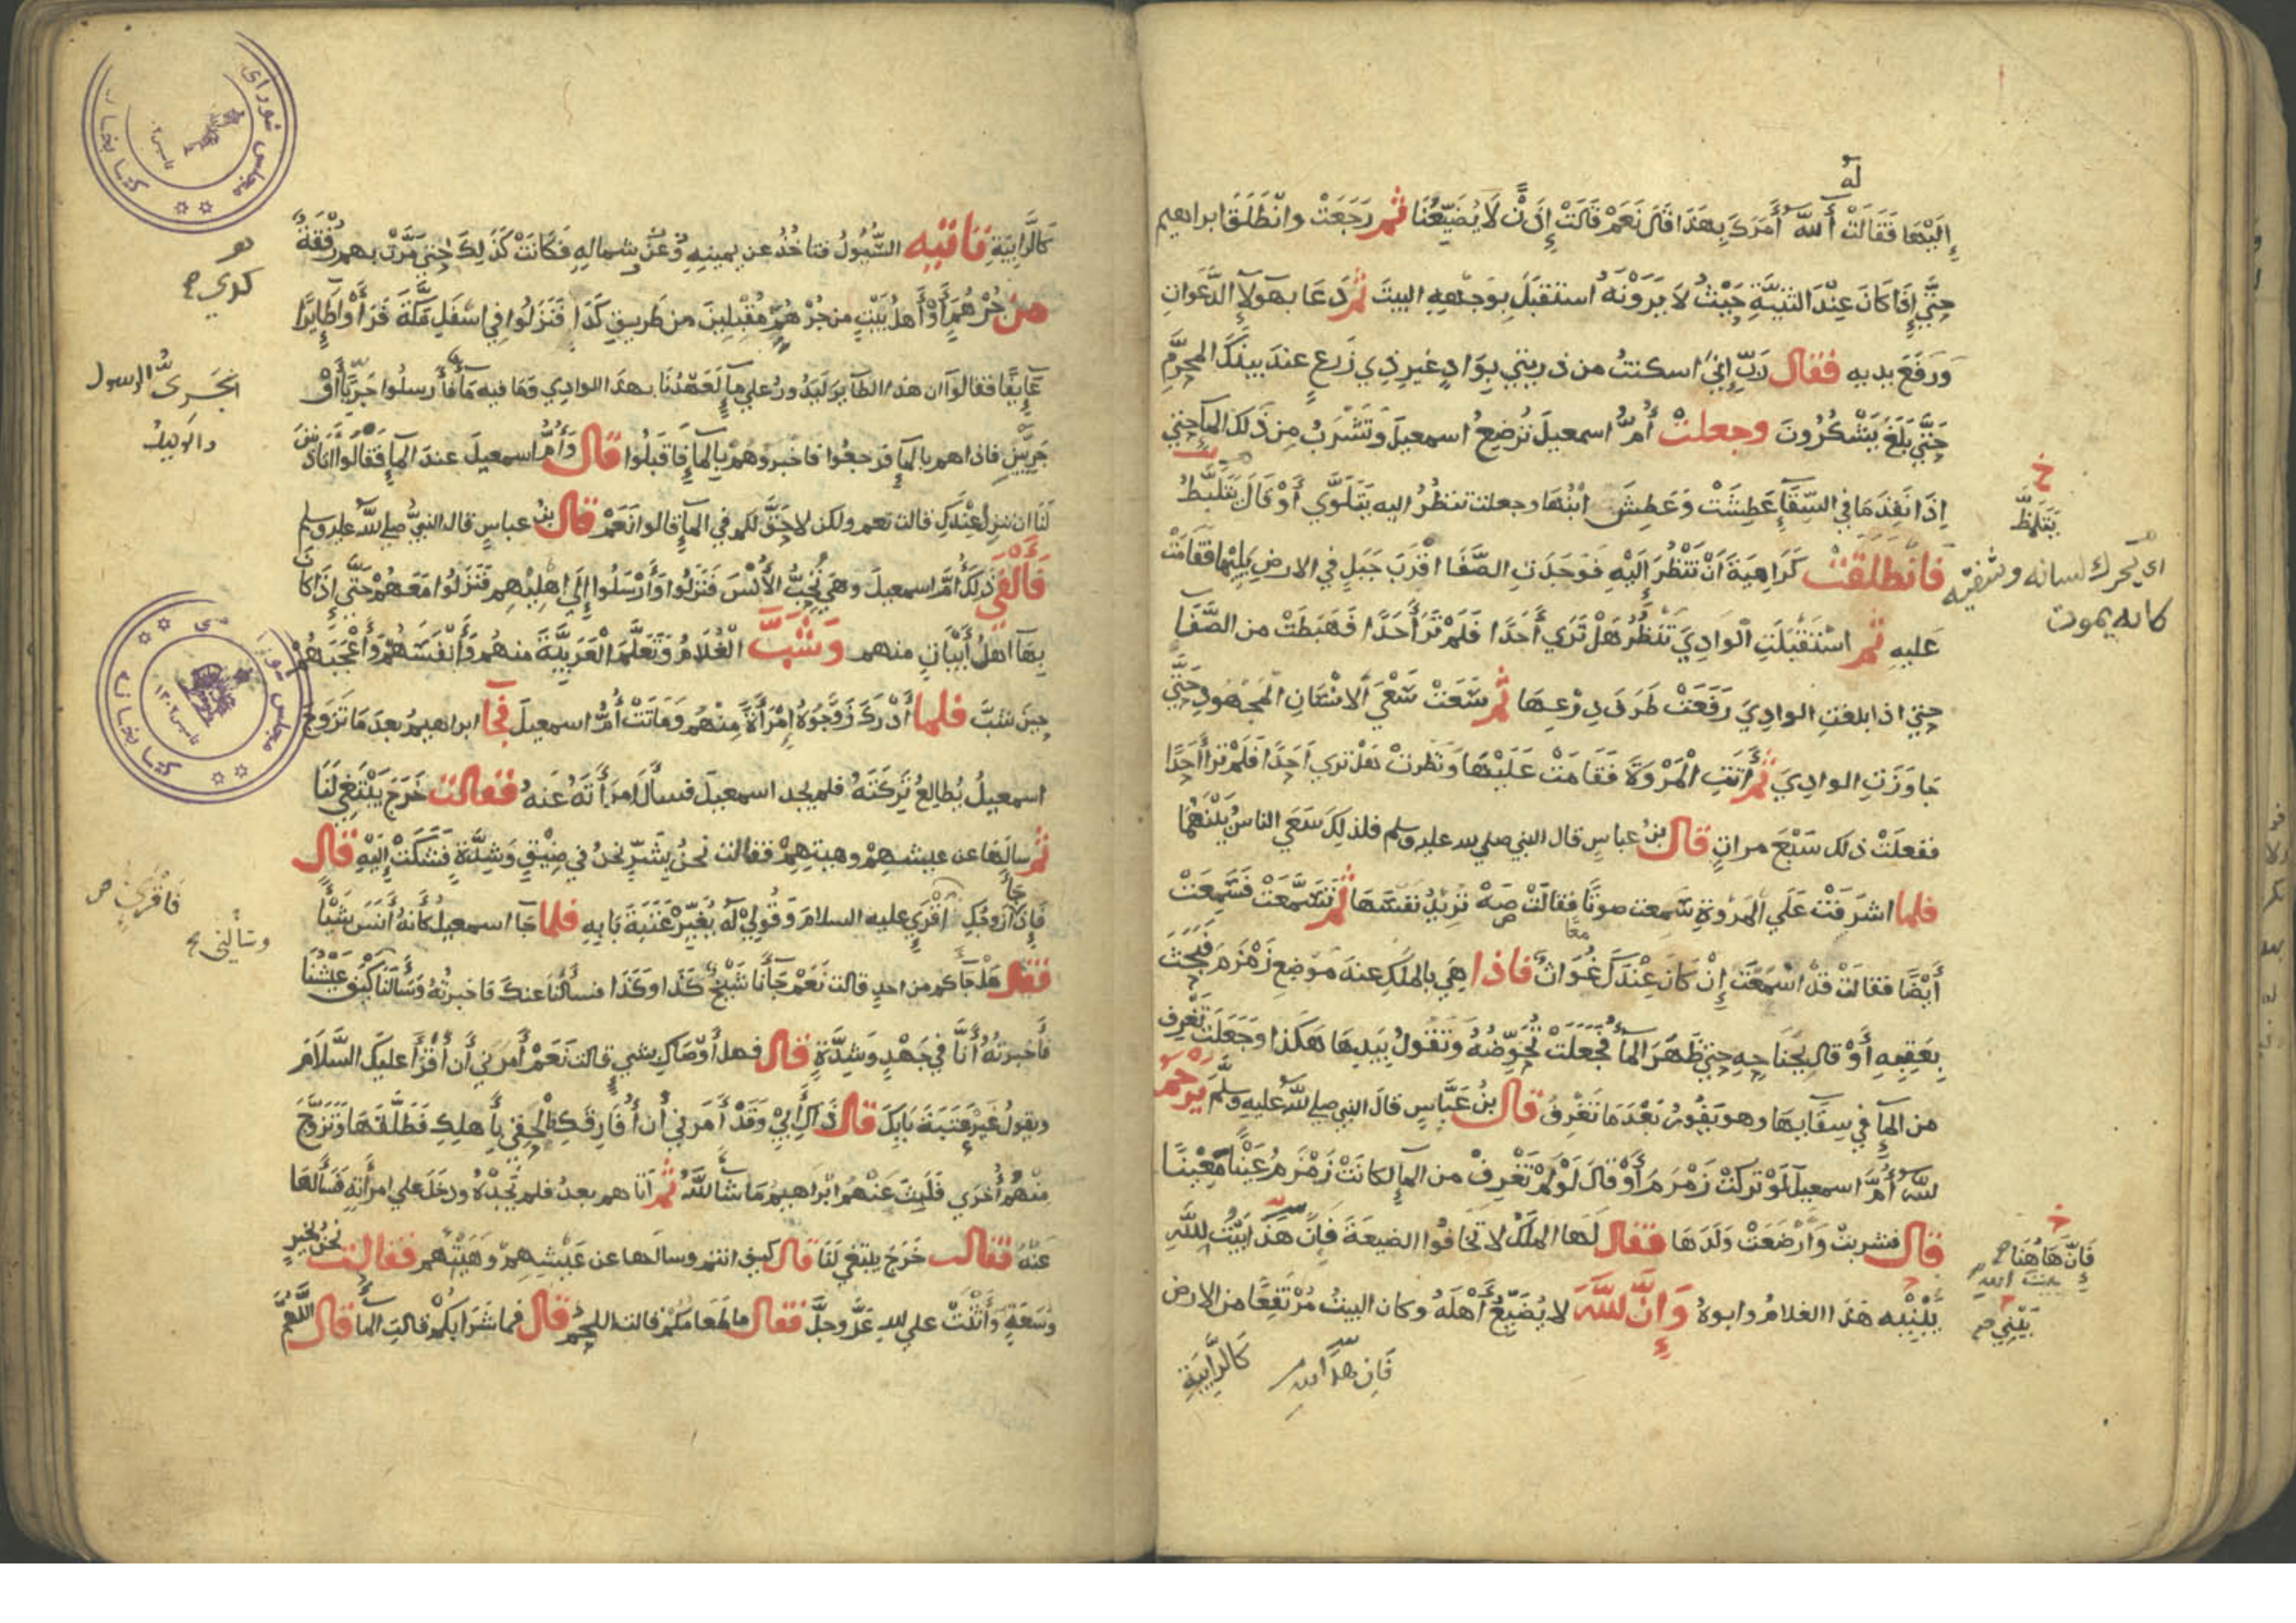 له
إليها فقالت ألله أمرك بهذا قال نعم قالت إذن لا يضيعنا ثم رجعت وانطلق ابراهيم
حتى إذا كان عند الثنية حيث لا يرونه استقبل بوجهه البيت ثم دعا بهولاء الدعوات
ورفع يديه فقال رب إني اسكنت من ذريتي بواد غير ذي زرع عند بيتك المحرم
حتى بلغ يشكرون وجعلت أم اسمعيل ترضع اسمعيل وتشرب من ذلك الماء حتى
إذا نفد ما في السقاء عطشت وعطش ابنها وجعلت تنظر اليه يتلوى أو قال يتلبط
خ
يتلمظ
اى يحرك لسانه وشفتيه
كانه يموت
فانطلقت كراهية أن تنظر إليه فوجدت الصفا اقرب جبل في الارض يليها فقامت
عليه ثم استقبلت الوادي تنظر هل ترى أحدا فلم تر أحدا فهبطت من الصفا
حتى اذا بلغت الوادي رفعت طرف درعها ثم سعت سعي الانسان المجهود حتى
جاوزت الوادي ثم أتت المروة فقامت عليها ونظرت هل ترى احدا فلم تر أحدا
ففعلت ذلك سبع مرات قال بن عباس قال النبي صلى الله عليه وسلم فلذلك سعي الناس بينهما
فلما اشرفت على المروة سمعت صوتا فقالت صه تريد نفسها ثم تسمعت فسمعت
معا
أيضا فقالت قد اسمعت إن كان عندك غواث فاذا هي بالملك عند موضع زمزم فبحث
بعقبه أو قال بجناحه حتى ظهر الماء فجعلت تحوضه وتقول بيدها هكذا وجعلت تغرف
من الماء في سقايها وهو يفور بعد ما تغرف قال بن عباس قال النبي صلى الله عليه وسلم يرحم
الله أم اسمعيل لو تركت زمزم أو قال لو لم تغرف من الماء لكانت زمزم عينا معينا
قال فشربت وأرضعت ولدها فقال لها الملك لا تخافوا الضيعة فإن هذا بيت الله
خ
فإن هاهنا
بيت الله
يبنيه هذا الغلام وابوه وإن الله لا يضيع أهله وكان البيت مرتفعا من الارض
يبني
فإن هذا
كالرابية
كالرابية فاتيه السيول فتاخذ عن يمينه وعن شماله فكانت كذلك حتى مرت بهم رفقة
من جرهم أو أهل بيت من جرهم مقبلين من طريق كدا فنزلوا في اسفل مكة فرأوا طايرا
كدي
عايفا فقالوا ان هذا الطاير ليدور على ماء لعهدنا بهذا الوادي وما فيه ماء فأرسلوا جريا أو
الجرى الرسول
والوكيل
جريين فاذا هم بالماء فرجعوا فاخبروهم بالماء فاقبلوا قال وأم اسمعيل عند الماء فقالوا اتاذنين
لنا ان ننزل عندك قالت نعم ولكن لا حق لكم في الماء قالوا نعم قال بن عباس قال النبي صلى الله عليه وسلم
فألفى ذلك أم اسمعيل وهي تحب الأنس فنزلوا وأرسلوا إلى اهليهم فنزلوا معهم حتى إذا كان
بها اهل أبيات منهم وشب الغلام وتعلم العربية منهم وأنفسهم وأعجبهم
حين شب فلما أدرك زوجوه إمرأة منهم وماتت أم اسمعيل فجا ابراهيم بعد ما تزوج
اسمعيل يطالع تركته فلم يجد اسمعيل فسأل امرأته عنه فقالت خرج يبتغي لنا
ثم سالها عن عيشهم وهيئتهم فقالت نحن بشر نحن في ضيق وشدة فشكت إليه قال
فإذا جاء زوجك اقرى عليه السلام وقولي له يغير عتبة بابه فلما جاء اسمعيل كأنه أنس شيئا
فاقرئ
وسألني
فقال هل جاكم من احد قالت نعم جانا شيخ كذا وكذا فسالنا عنك فاخبرته وسألنا كيف عيشنا
فاخبرته أنا في جهد وشدة قال فهل أوصاك بشي قالت نعم أمرني أن أقرأ عليك السلام
ويقول غير عتبة بابك قال ذاك أبي وقد أمرني أن أفارقك الحقي بأهلك فطلقها وتزوج
منهم أخرى فلبث عنهم ابراهيم ما شا الله ثم أتاهم بعد فلم يجده ودخل على امرأته فسألها
عنه فقالت خرج يبتغي لنا قال كيف انتم وسالها عن عيشهم وهيئتهم فقالت نحن بخير
وسعة وأثنت على الله عز وجل فقال ما طعامكم قالت اللحم قال فما شرابكم قالت الماء قال اللهم
مجلس شورای
کتابخانه
مجلس شورای
کتابخانه